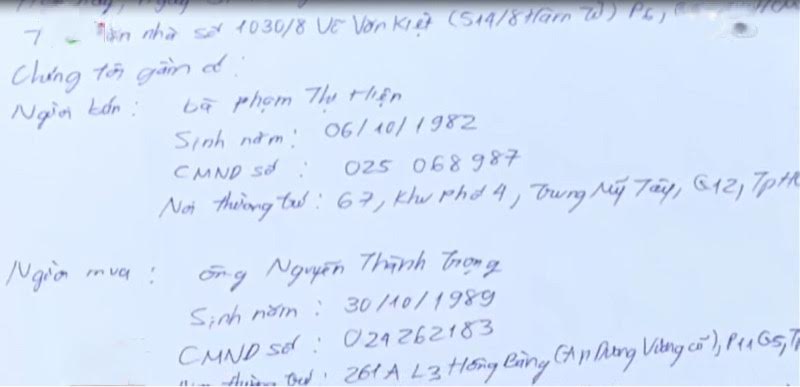 nhà số 1030/8 Võ Văn Kiệt (514/8 Hàm Tử) P6,
Chúng tôi gồm có :
Người bán : bà Phạm Thị Hiện
Sinh năm : 06/10/1982
CMND số : 025 068 987
Nơi thường trú : 67, Khu phố 4, Trung Mỹ Tây, Q12, TpHC
Người mua : ông Nguyễn Thành Trọng
Sinh năm : 30/10/1989
CMND số : 024262183
thường trú : 261A L3 Hồng Bàng (An Dương Vương cũ), P11 Q5, Tp